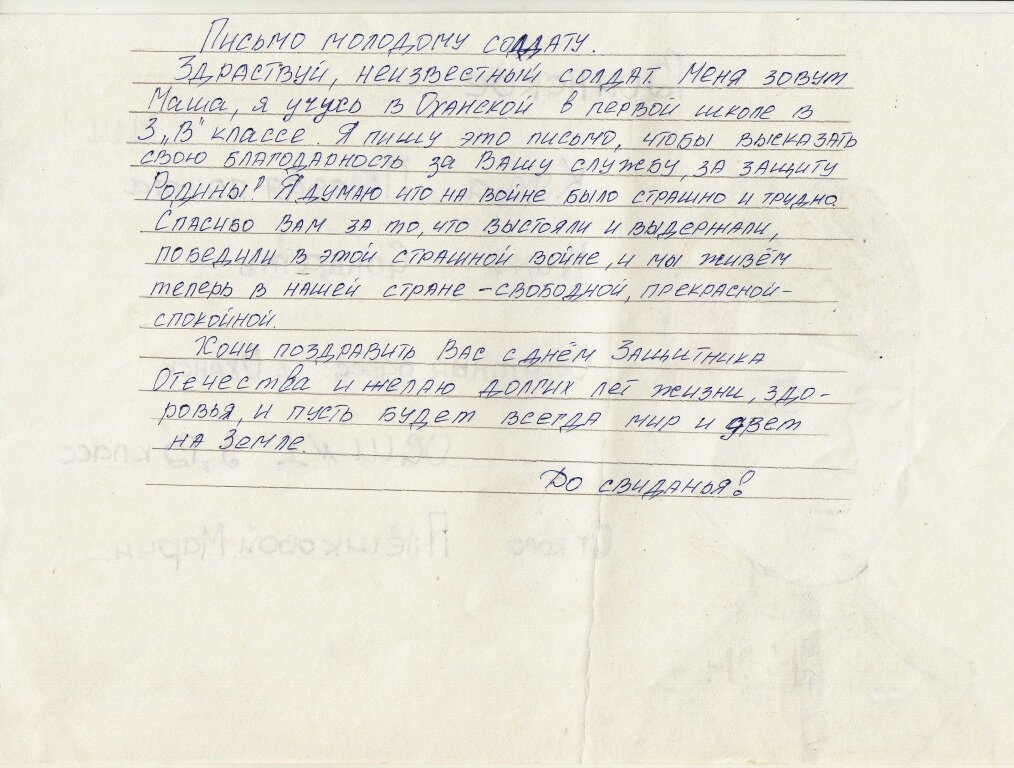 Письмо молодому солдату.
Здраствуй, неизвестный солдат. Меня зовут
Маша, я учусь в Оханской в первой школе в
3 „В" классе. Я пишу это письмо, чтобы высказать
свою благодарность за Вашу службу, за защиту
Родины! Я думаю что на войне было страшно и трудно.
Спасибо Вам за то, что выстояли и выдержали,
победили в этой страшной войне, и мы живём
теперь в нашей стране – свободной, прекрасной –
спокойной.
Хочу поздравить Вас с днём Защитника
Отечества и желаю долгих лет жизни, здо-
ровья, и пусть будет всегда мир и
на Земле.
До свиданья!
От кого Плешковой Марии